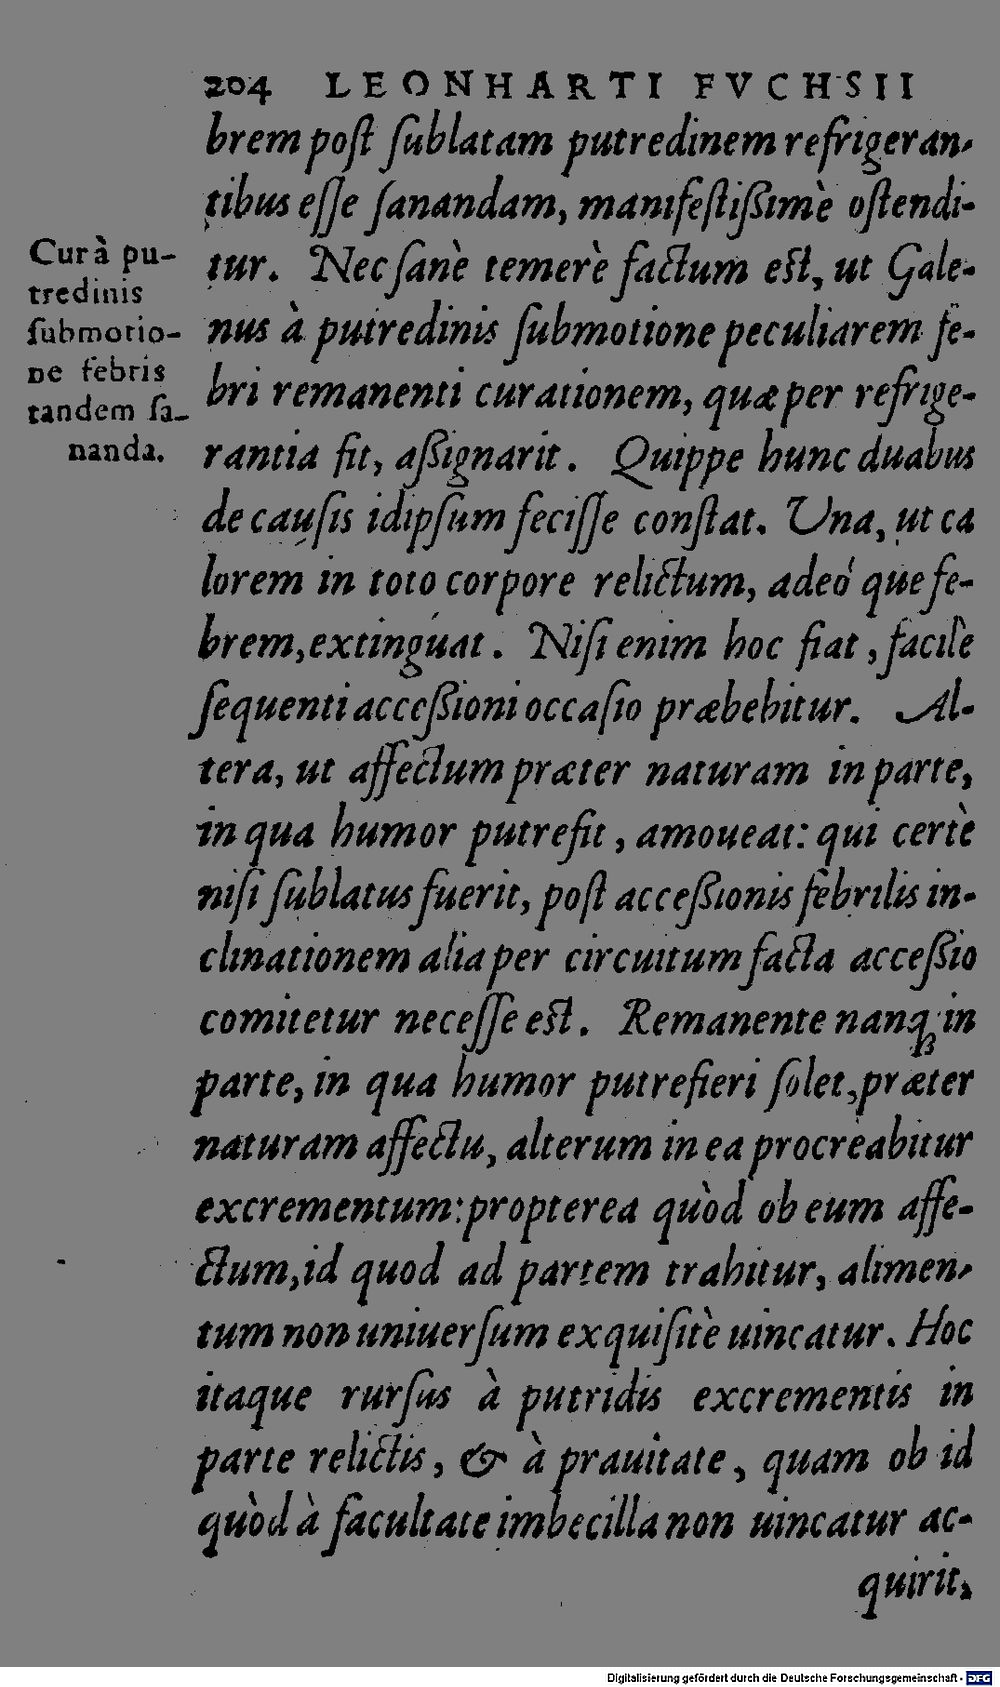 204 LEONHARTI FVCHSII
brem post sublatam putredinem refrigeran-
tibus esse sanandam, manifestißimè ostendi-
tur. Nec sanè temerè factum est, ut Gale-
nus à putredinis submotione peculiarem fe-
bri remanenti curationem, quæ per refrige-
rantia fit, aßignarit. Quippe hunc duabus
de causis idipsum fecisse constat. Una, ut ca
lorem in toto corpore relictum, adeó que fe-
brem, extinguat. Nisi enim hoc fiat, facile
sequenti acceßioni occasio præbebitur. Al-
tera, ut affectum præter naturam in parte,
in qua humor putrefit, amoueat: qui certè
nisi sublatus fuerit, post acceßionis febrilis in-
clinationem alia per circuitum facta acceßio
comitetur necesse est. Remanente nanq; in
parte, in qua humor putrefieri solet, præter
naturam affectu, alterum in ea procreabitur
excrementum: propterea quòd ob eum affe-
ctum, id quod ad partem trahitur, alimen-
tum non uniuersum exquisitè uincatur. Hoc
itaque rursus à putridis excrementis in
parte relictis, & à prauitate, quam ob id
quòd à facultate imbecilla non uincatur ac-
quirit,
Cur à pu-
tredinis
submotio-
ne febris
tandem sa-
nanda.
Digitalisierung gefördert durch die Deutsche Forschungsgemeinschaft - DFG